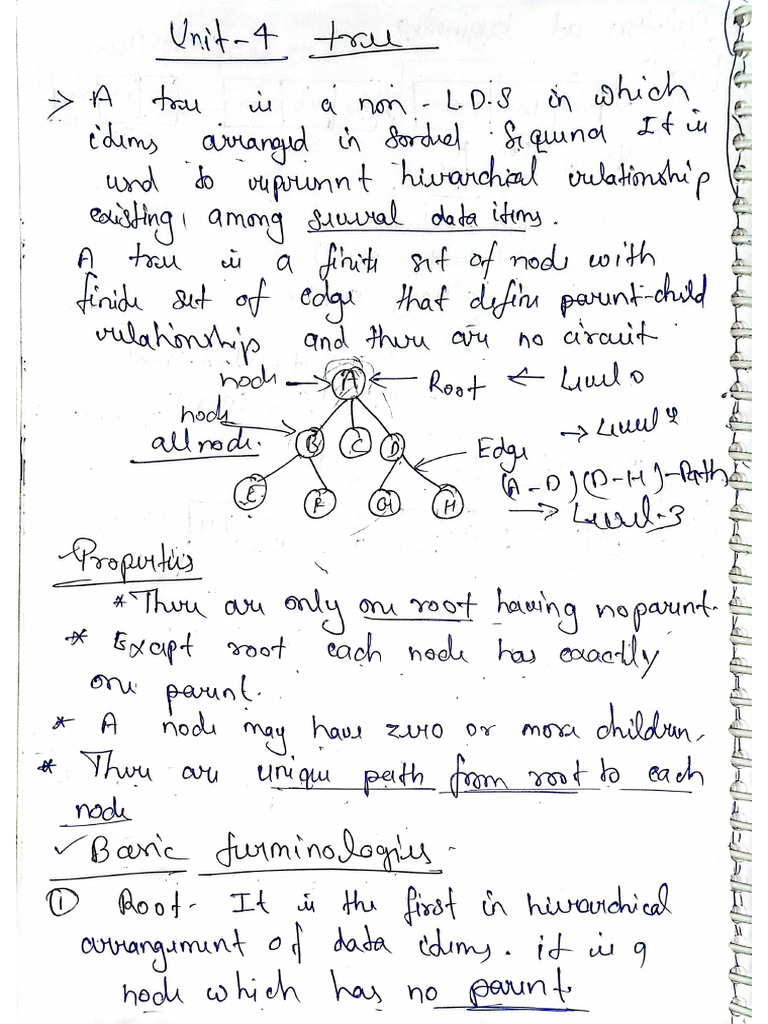 Unit-4 tree
-> A tree is a non-L.D.S in which
items arranged in sorted sequence It is
used to represent hierarchical relationship
existing among several data items.
A tree is a finite set of node with
finite set of edge that define parent-child
relationship and there are no circuit
node → A ← Root ← Level 0
node
all node. B C D → Level
Edge
E F G H (A-D)(D-H)-Path
→ Level-3
Properties
* There are only one root having no parent.
* Except root each node has exactly
one parent.
* A node may have zero or more children.
* There are unique path from root to each
node
✓ Basic Terminologies -
① Root - It is the first in hierarchical
arrangement of data items. it is a
node which has no parent.